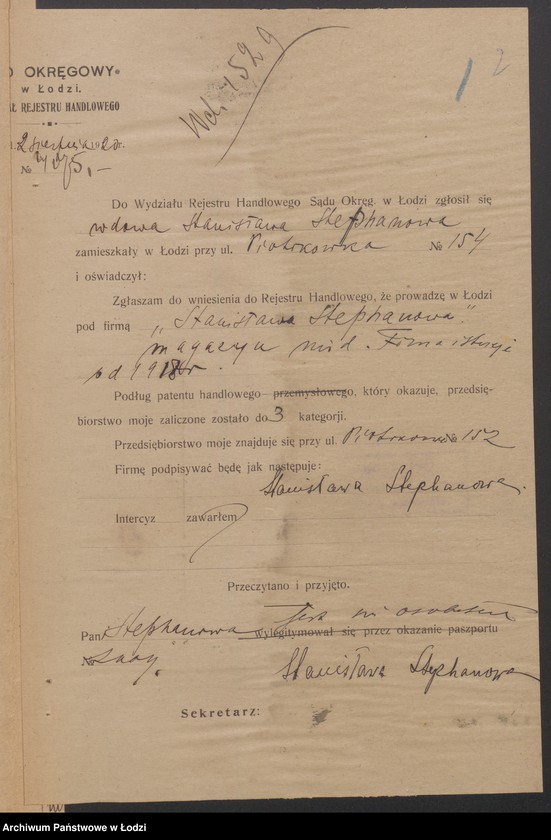 Wdr. 1529
1 2
D OKRĘGOWY
w Łodzi.
AŁ REJESTRU HANDLOWEGO
2 sierpnia 192
№ 5,—
Do Wydziału Rejestru Handlowego Sądu Okręg. w Łodzi zgłosił się
wdowa Stanisława Stephanowa
zamieszkały w Łodzi przy ul. Piotrkowska № 154
i oświadczył:
Zgłaszam do wniesienia do Rejestru Handlowego, że prowadzę w Łodzi
pod firmą „Stanisława Stephanowa"
magazyn mód. Firma istnieje
od 1918 r.
Podług patentu handlowego przemysłowego, który okazuje, przedsię-
biorstwo moje zaliczone zostało do 3 kategorji.
Przedsiębiorstwo moje znajduje się przy ul. Piotrkowska 152
Firmę podpisywać będę jak następuje:
Stanisława Stephanowa.
Intercyz zawarłem
Przeczytano i przyjęto.
jest mi osobiście
Pan Stephanowa wylegitymował się przez okazanie paszportu
№ znany.
Stanisława Stephanowa
Sekretarz:
Archiwum Państwowe w Łodzi